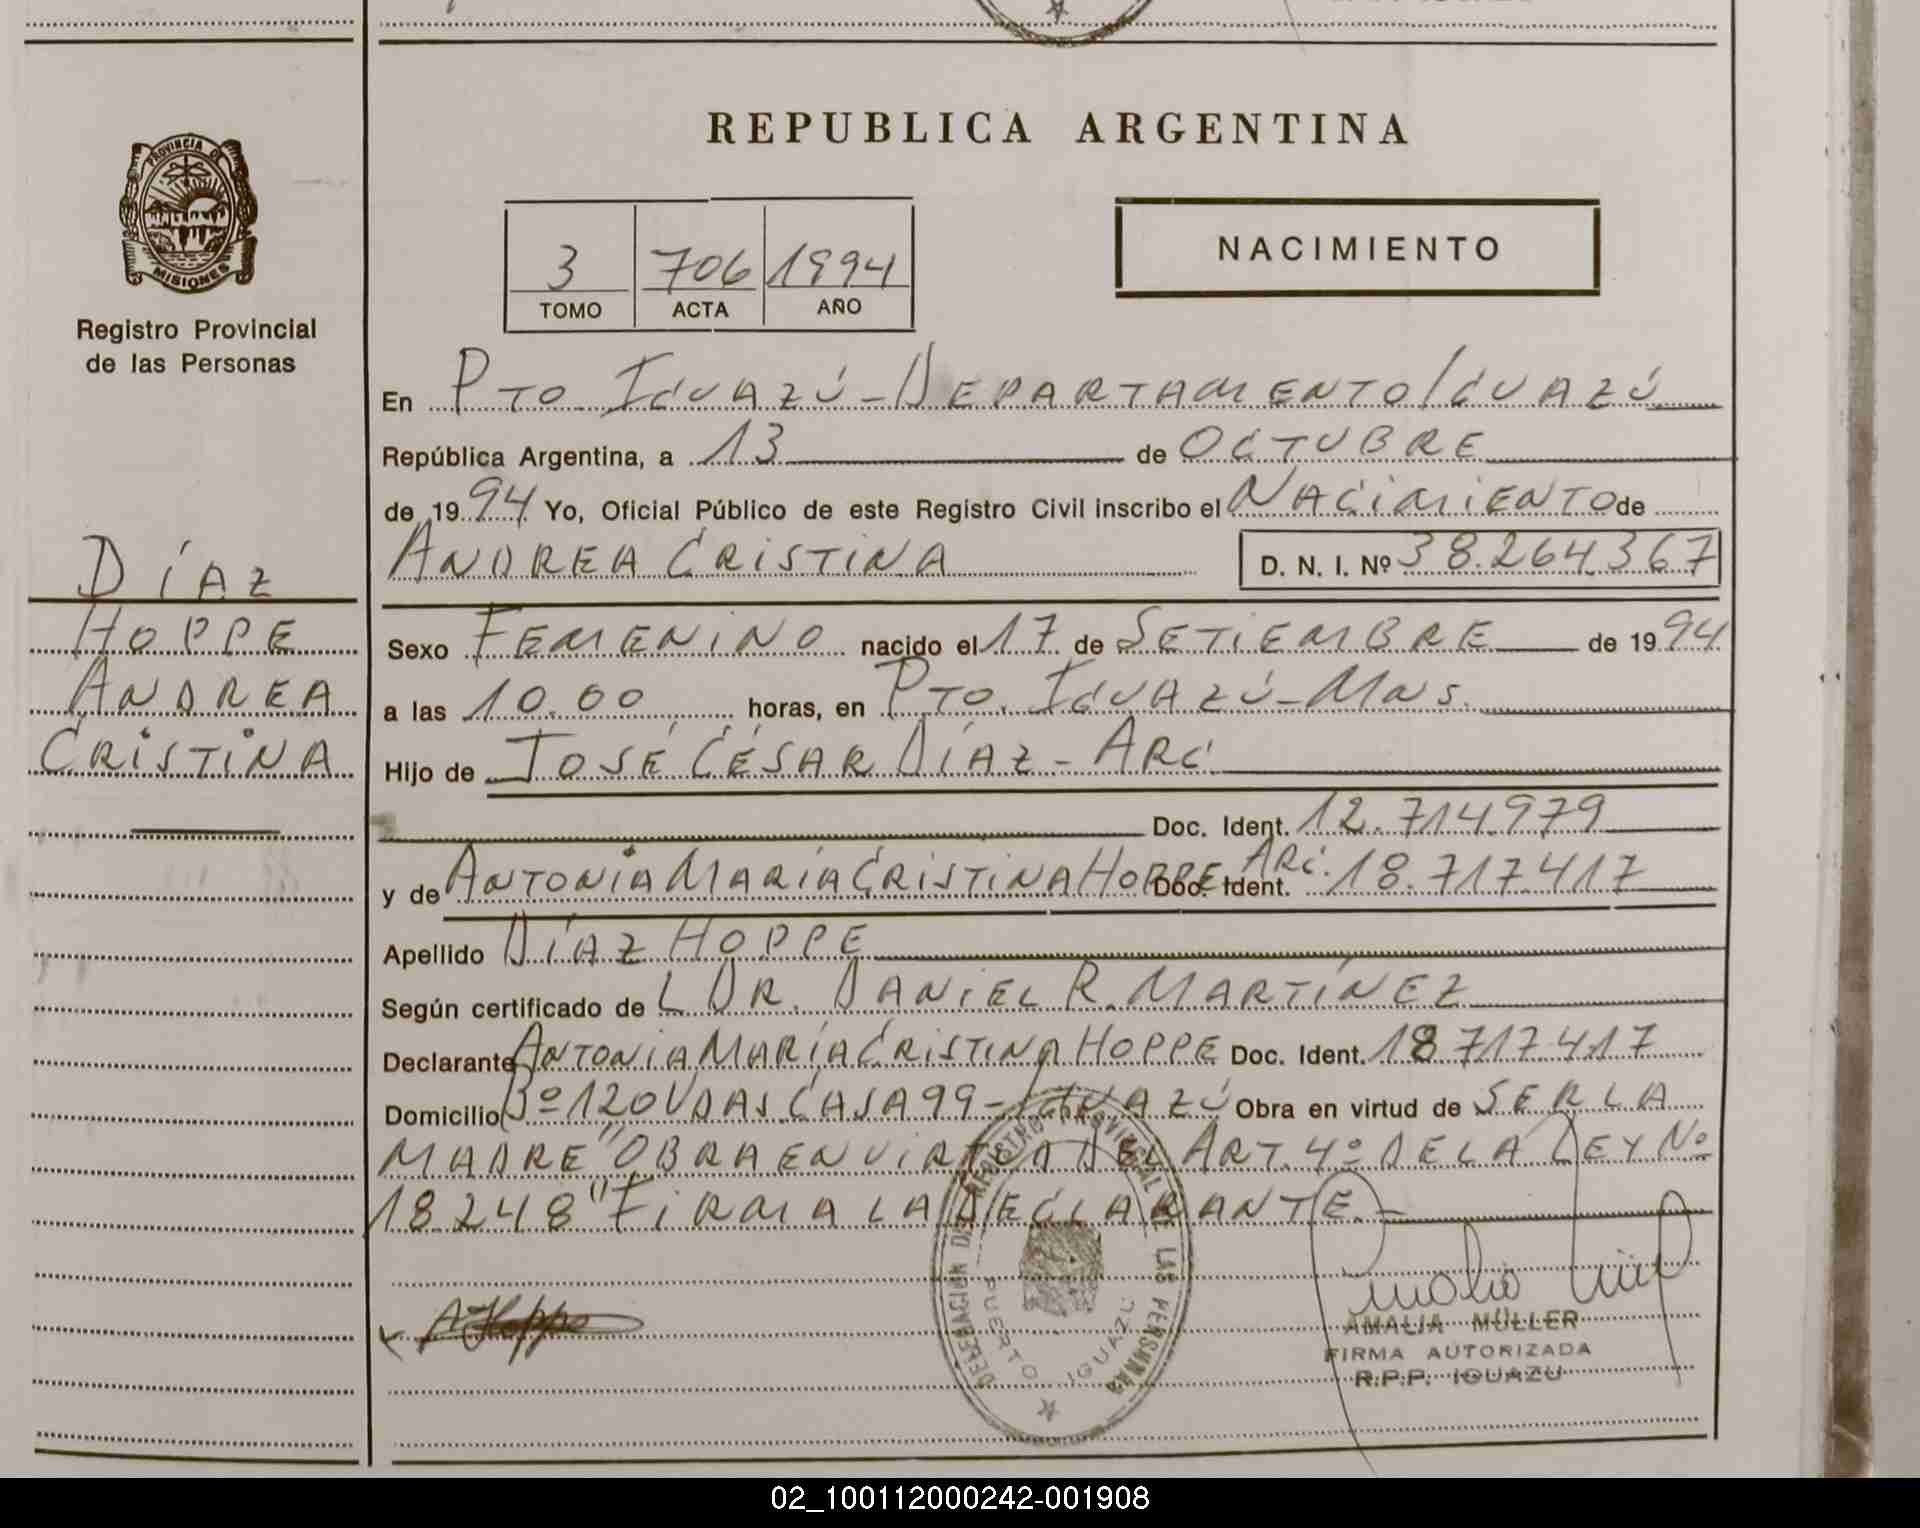 PROVINCIA DE
MISIONES
Registro Provincial
de las Personas
DÍAZ
HOPPE
ANDREA
CRISTINA
REPUBLICA ARGENTINA
3 706 1994
TOMO ACTA AÑO
NACIMIENTO
En PTO. IGUAZÚ - DEPARTAMENTO IGUAZÚ
República Argentina, a 13 de OCTUBRE
de 1994 Yo, Oficial Público de este Registro Civil inscribo el NACIMIENTO de
ANDREA CRISTINA D. N. I. Nº 38.264.367
Sexo FEMENINO nacido el 17 de SETIEMBRE de 1994
a las 10.00 horas, en PTO. IGUAZÚ - MNS.
Hijo de JOSÉ CÉSAR DÍAZ - ARG.
Doc. Ident. 12.714.979
y de ANTONIA MARÍA CRISTINA HOPPE ARG. Doc. Ident. 18.717.417
Apellido DÍAZ HOPPE
Según certificado de L DR. DANIEL R. MARTÍNEZ
Declarante ANTONIA MARÍA CRISTINA HOPPE Doc. Ident. 18.717.417
Domicilio Bº 120 VDAS CASA 99 - IGUAZÚ Obra en virtud de SER LA
MADRE "OBRA EN VIRTUD DEL ART. 4º DE LA LEY Nº
18.248" FIRMA LA DECLARANTE.-
A Hoppe
DELEGACION DEL REGISTRO PROVINCIAL DE LAS PERSONAS
PUERTO IGUAZU
AMALIA MÜLLER
FIRMA AUTORIZADA
R.P.P. IGUAZU
02_100112000242-001908